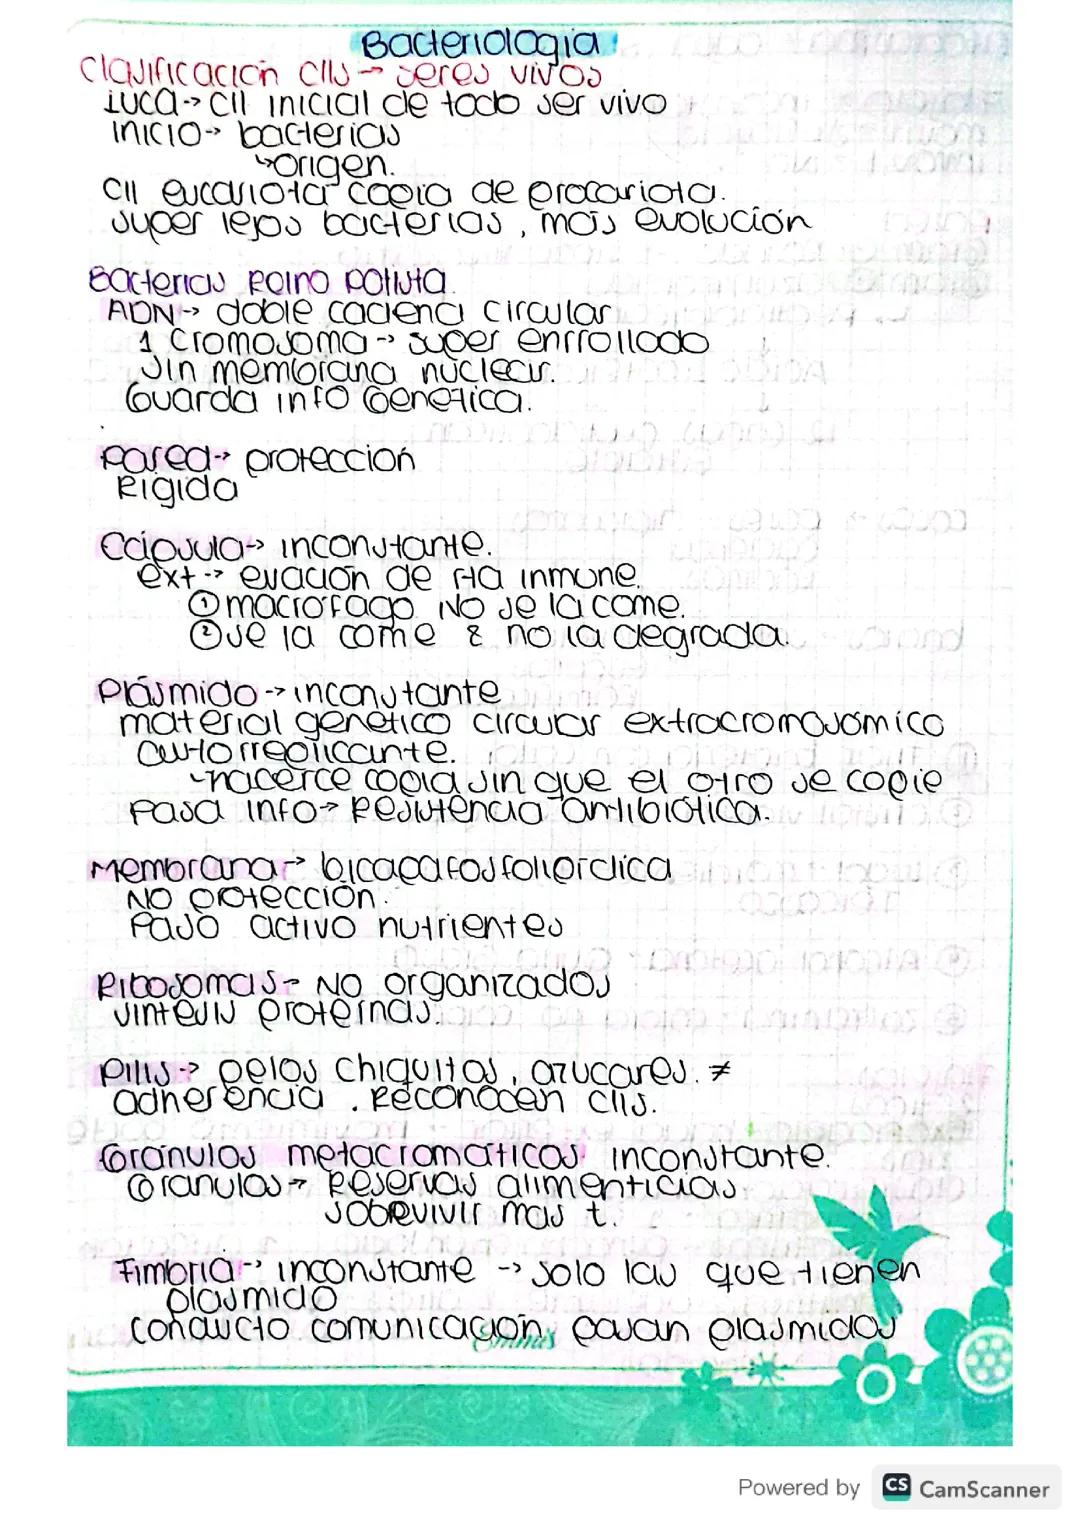 Bacteriologia
Clasificación clls → seres vivos
LUCA → cll inicial de todo ser vivo
Inicio → bacterias
↳ origen.
Cll eucariota copia de procariota.
Super lejos bacterias, más evolución
Bacterias Reino
ADN → doble cadena circular
1 Cromosoma → super enrrollado
Sin membrana nuclear.
Guarda info Genética.
Pared → protección
Rígida
Cápsula → inconstante.
ext → evación de rta inmune.
① macrófago NO se la come.
② se la come & no la degrada.
Plásmido → inconstante
material genético circular extracromosómico
autorreplicante.
↳ hacerce copia sin que el otro se copie
Pasa info → Resistencia antibiótica.
Membrana → bicapa fosfolipídica
NO protección.
Paso activo nutrientes
Ribosomas → NO organizados
síntesis proteínas.
Pilis → pelos chiquitos, azucares. ≠
adherencia. Reconocen clls.
Gránulos metacromáticos inconstante.
Granulos → Reservas alimenticias
sobrevivir mas t.
Fimbria → inconstante → solo las que tienen
plasmido
Conducto comunicación, pasan plasmidos
Emmis
Powered by CS CamScanner